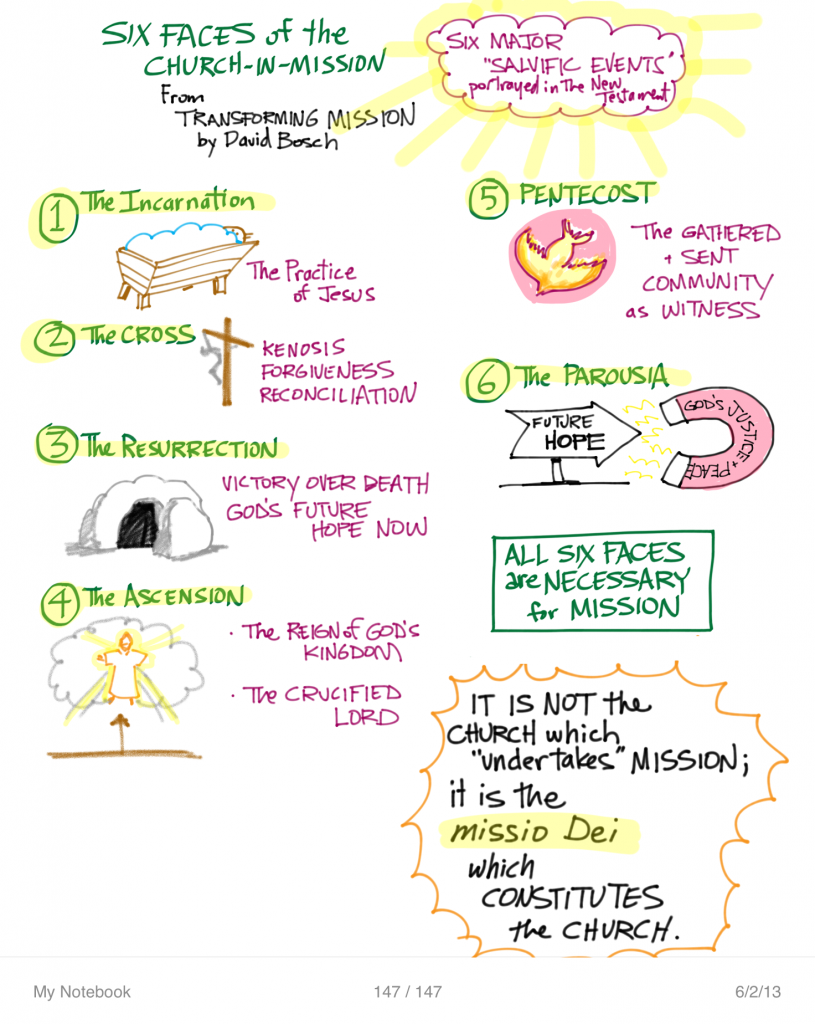 SIX FACES of the
CHURCH-IN-MISSION
From
TRANSFORMING MISSION
by David Bosch
SIX MAJOR
"SALVIFIC EVENTS"
portrayed in The New
Testament
1 The Incarnation
The Practice
of Jesus
2 The CROSS
KENOSIS
FORGIVENESS
RECONCILIATION
3 The RESURRECTION
VICTORY OVER DEATH
GOD'S FUTURE
HOPE NOW
4 The ASCENSION
· The REIGN of GOD'S
KINGDOM
· The CRUCIFIED
LORD
5 PENTECOST
The GATHERED
+ SENT
COMMUNITY
as WITNESS
6 The PAROUSIA
FUTURE
HOPE
GOD'S JUSTICE + PEACE
ALL SIX FACES
are NECESSARY
for MISSION
IT IS NOT the
CHURCH which
"undertakes" MISSION;
it is the
missio Dei
which
CONSTITUTES
the CHURCH.
My Notebook
147 / 147
6/2/13